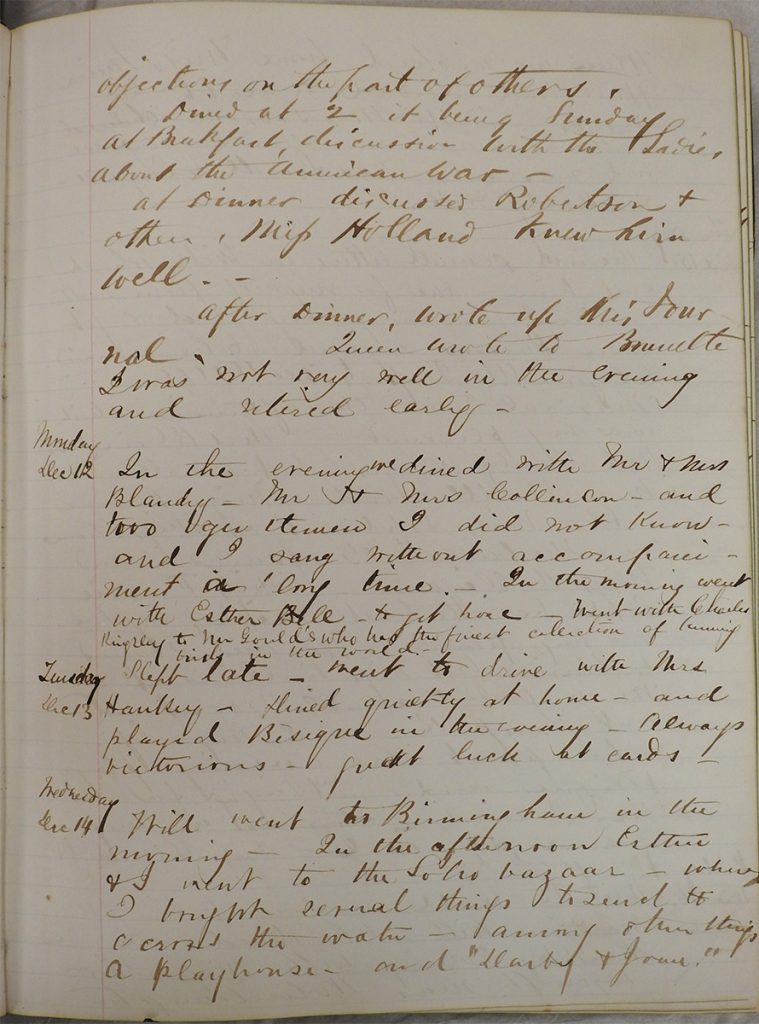 objections on the part of others.
Dined at 2 it being Sunday
at Breakfast, discussion with the Ladies
about the American War —
at Dinner discussed Robertson &
others, Miss Holland knew him
well. —
after Dinner, wrote up this Jour-
nal. wrote to Brunette
I was not very well in the evening
and retired early —
Monday
Dec 12 In the evening we dined with Mr & Mrs
Blandy — Mr & Mrs Collinson — and
two gentlemen I did not know —
and I sang without accompani-
ment a long time. — In the morning went
with Esther Bell — to get hose — Went with Charles
Kingsley to Mr Gould's who has the finest collection of humming
birds in the world. —
Tuesday Slept late — went to drive with Mrs
Dec 13 Hankey — Dined quietly at home — and
played Besique in the evening — Always
victorious — great luck at cards —
Wednesday
Dec 14 Will went to Birmingham in the
morning — In the afternoon Esther
& I went to the Soho bazaar — where
I bought several things to send
across the water — among other things
a playhouse — and "Darby & Joan."